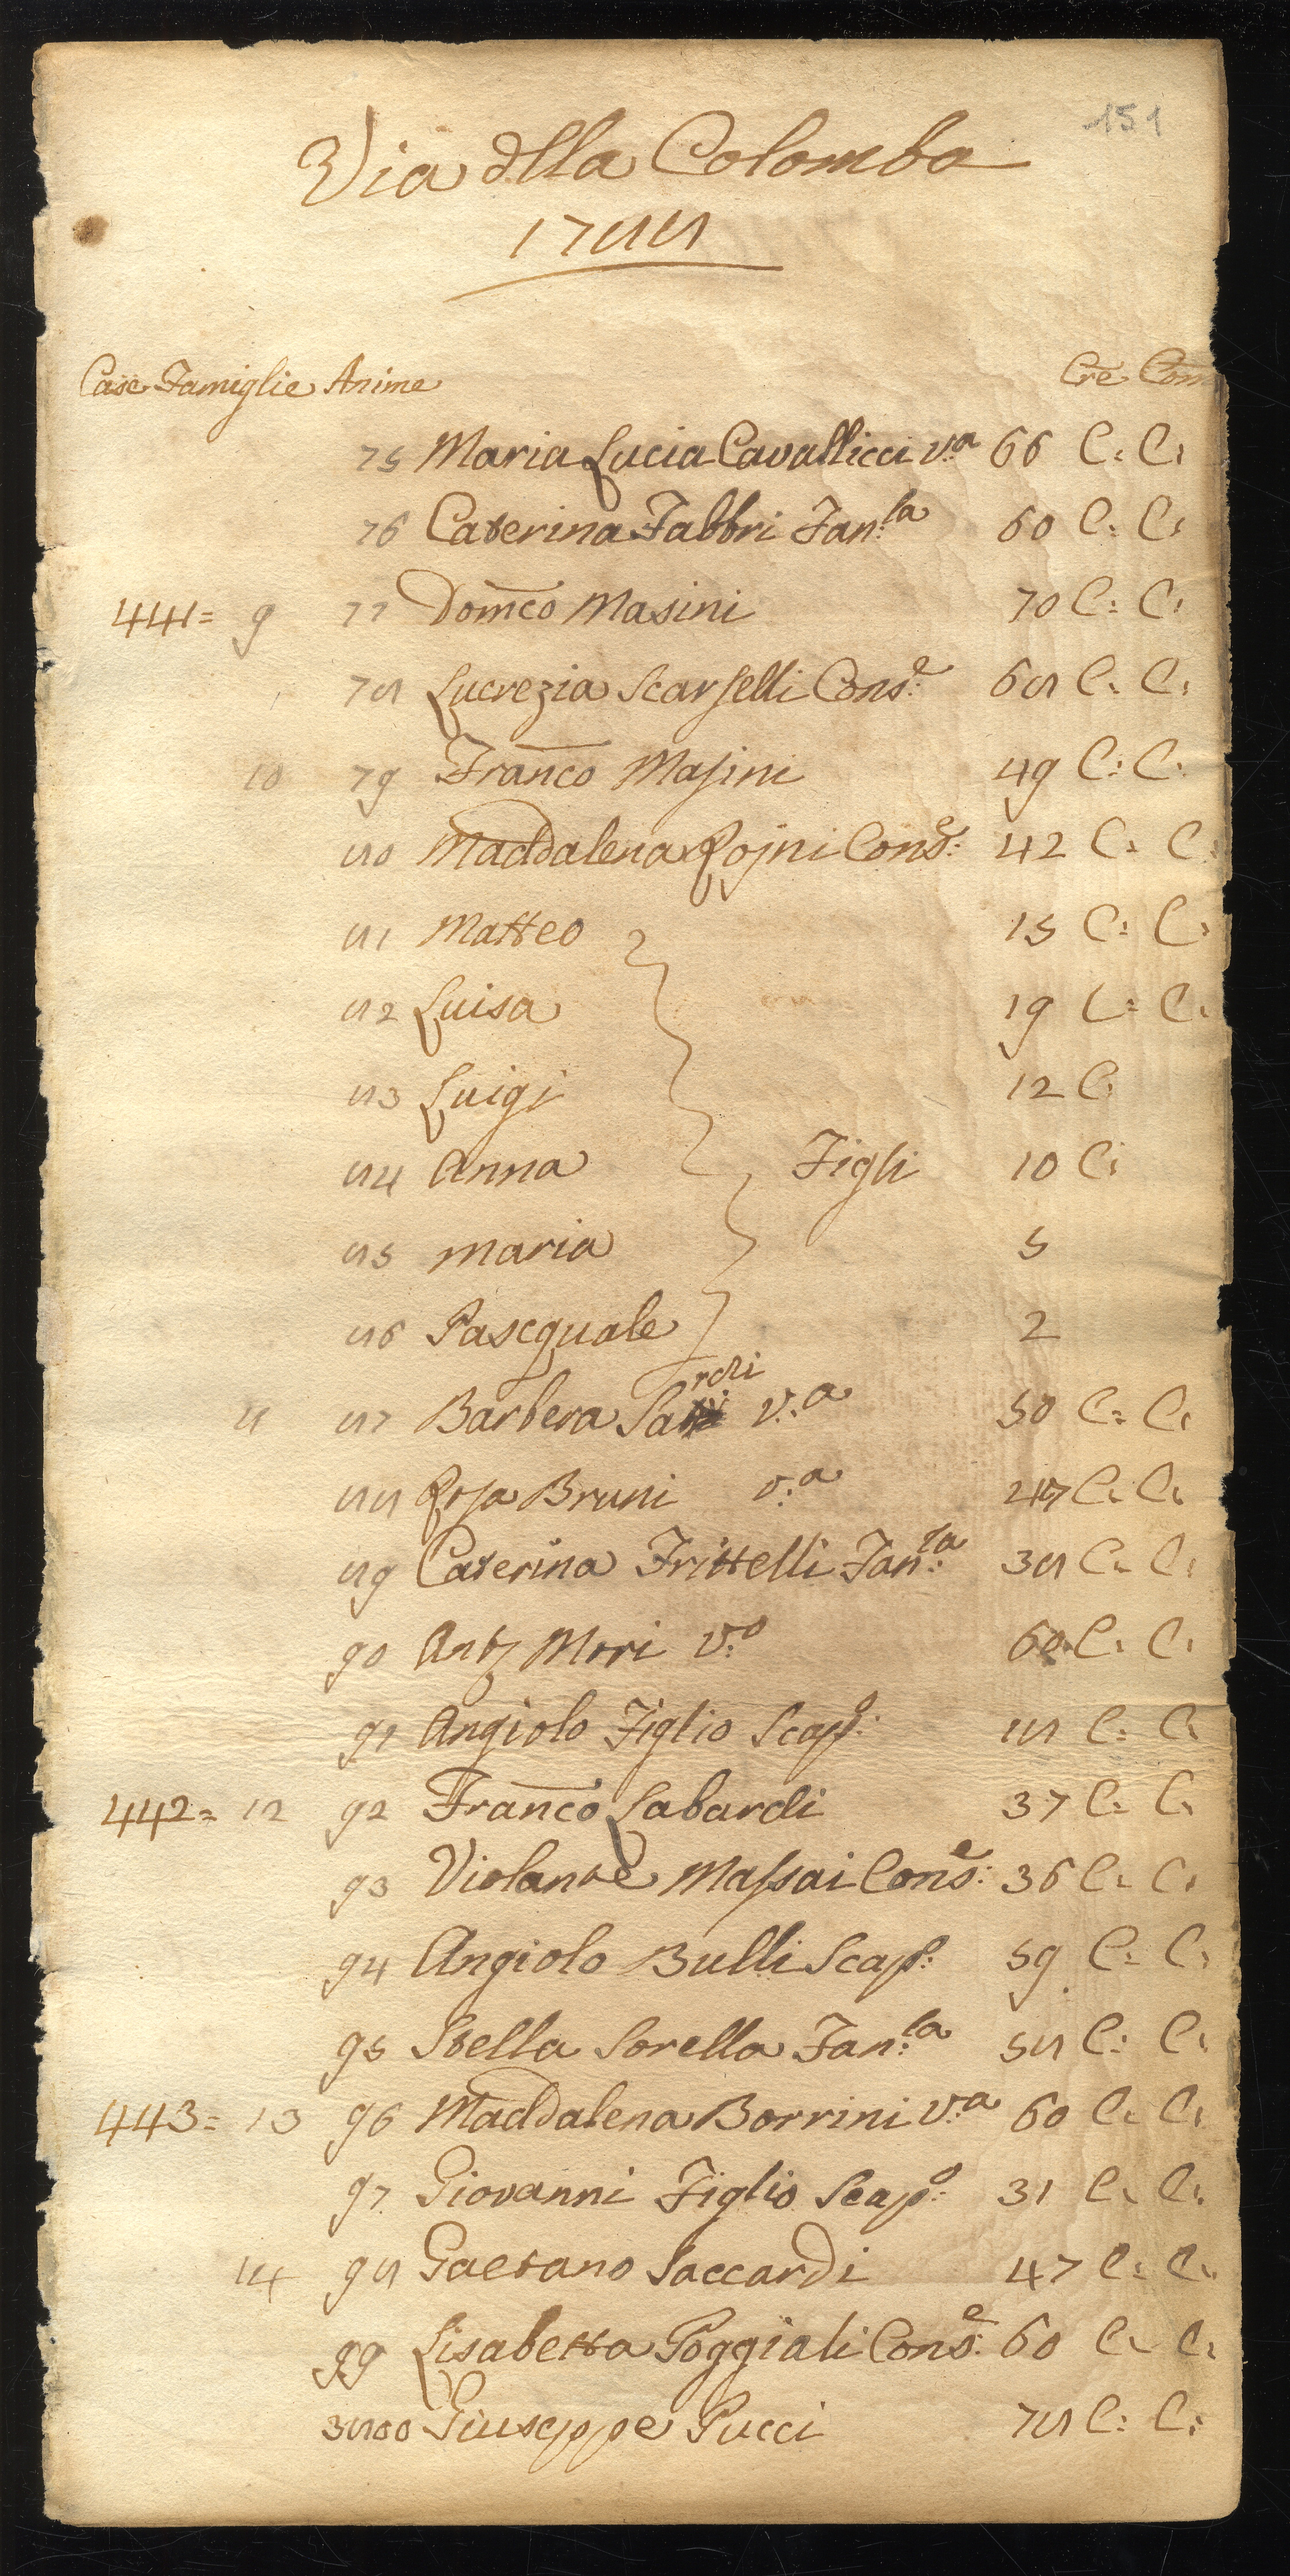 151
Via dlla Colomba
1788
Case Famiglie Anime Cre Com
75 Maria Lucia Cavallicci v.a 66 C: C:
76 Caterina Fabbri Fan:la 60 C: C:
441= 9 77 Domco Masini 70 C: C:
78 Lucrezia Scarselli Cons:e 68 C: C:
10 79 Franco Masini 49 C: C:
80 Maddalena Rosni Cons:e 42 C: C:
81 Matteo 15 C: C:
82 Luisa 19 C: C:
83 Luigi 12 C:
84 Anna Figli 10 C:
85 Maria 5
86 Pascquale 2
11 87 Barbera Sardi v:a 50 C: C:
88 Rosa Bruni v:a 47 C: C:
89 Caterina Frittelli Fan:la 38 C: C:
90 Anto Mori v:o 60 C: C:
91 Angiolo Figlio Scap:o 18 C: C:
442= 12 92 Franco Labardi 37 C: C:
93 Violante Massai Cons:e 36 C: C:
94 Angiolo Bulli Scap: 59 C: C:
95 Stella Sorella Fan:la 58 C: C:
443= 13 96 Maddalena Borrini v:a 60 C: C:
97 Giovanni Figlio Scap:o 31 C: C:
14 98 Gaetano Saccardi 47 C: C:
99 Lisabetta Poggiali Cons:e 60 C: C:
3800 Giuseppe Pucci 78 C: C: